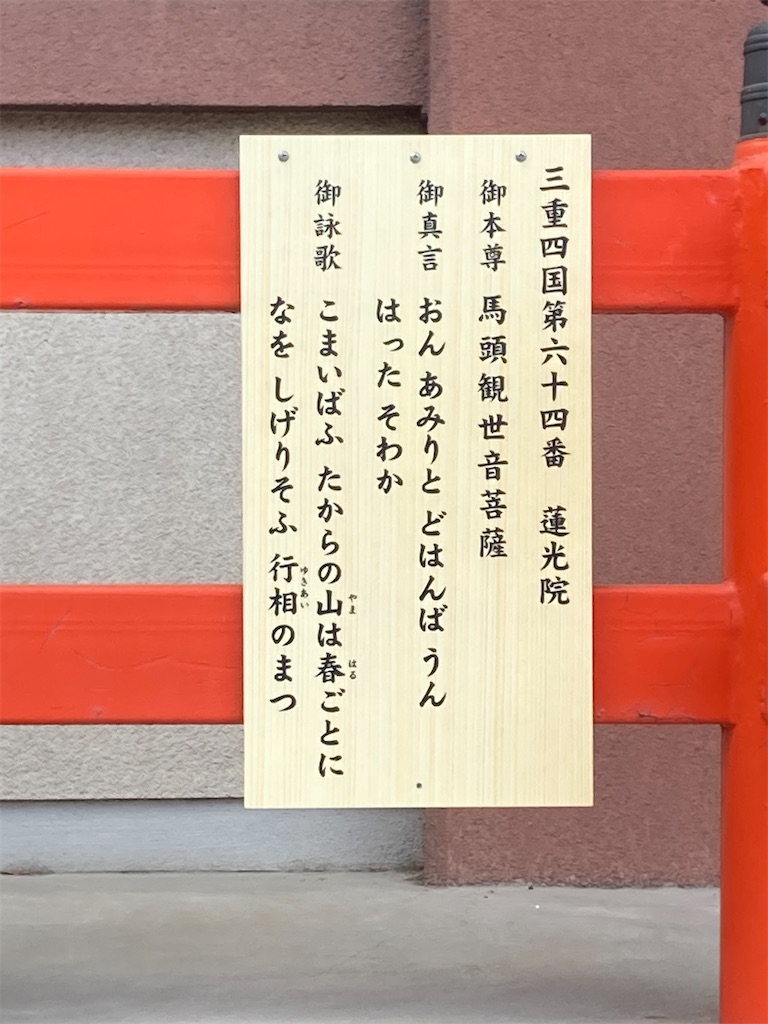 三重四国第六十四番　蓮光院
御本尊　馬頭観世音菩薩
御真言　おん あみりと どはんば うん
はった そわか
御詠歌　こまいばふ たからの山は春ごとに
やま　はる
なを しげりそふ 行相のまつ
ゆきあい